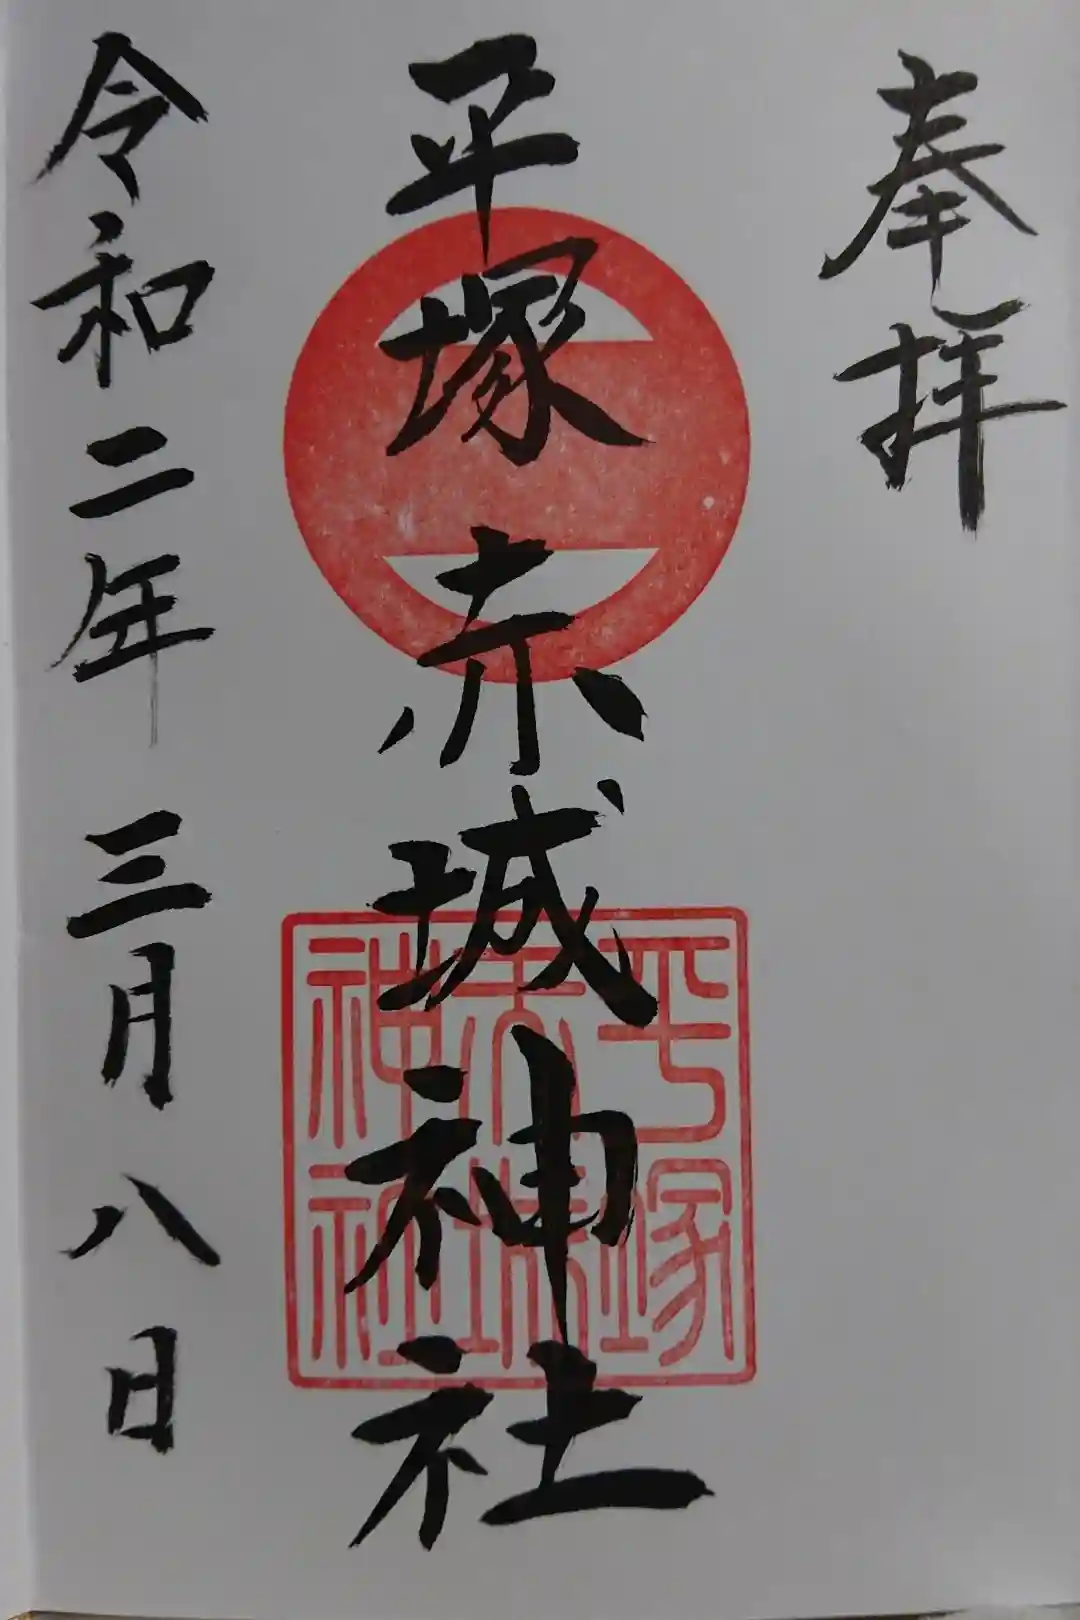 奉拝
平塚赤城神社
平塚
赤城
神社
令和二年三月八日